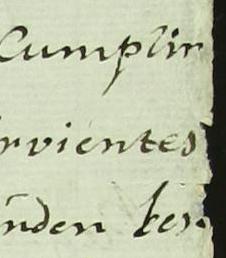 Cumplir
rvientes
nden ber.